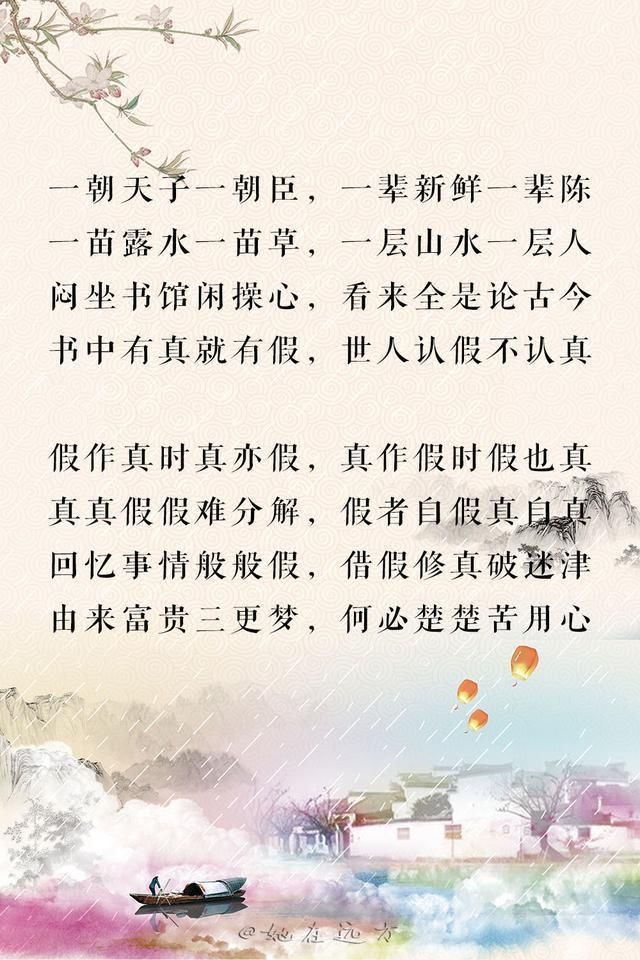 一朝天子一朝臣，一辈新鲜一辈陈
一苗露水一苗草，一层山水一层人
闷坐书馆闲操心，看来全是论古今
书中有真就有假，世人认假不认真
假作真时真亦假，真作假时假也真
真真假假难分解，假者自假真自真
回忆事情般般假，借假修真破迷津
由来富贵三更梦，何必楚楚苦用心
@她在远方